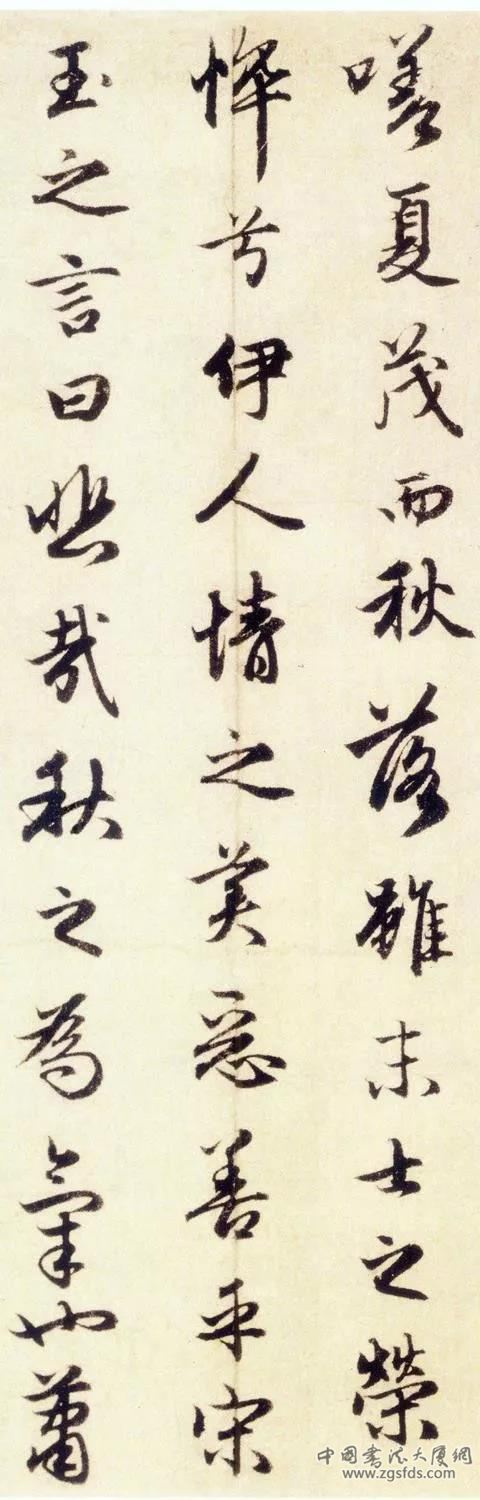 嗟夏茂而秋落雖末士之榮
悴兮伊人情之美惡善乎宋
玉之言曰悲哉秋之為氣也蕭
中國書法大廈網
www.zgsfds.com